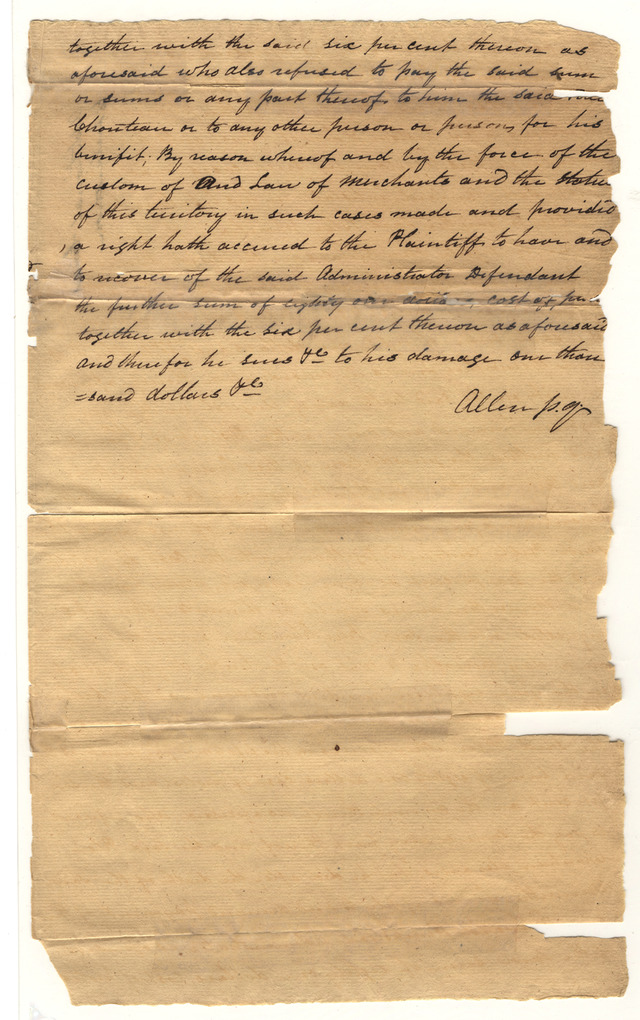 together with the said six per cent thereon as
aforesaid who also refused to pay the said sum
or sums or any part thereof to him the said
Chouteau or to any other person or persons for his
benifit; By reason whereof and by the force of the
custom of and Law of Merchants and the Statue
of this territory in such cases made and provided
, a right hath accrued to the Plaintiff to have and
to recover of the said Administrator Defendant
the further sum of eighty one cost of
together with the six per cent thereon as aforesaid
and therefor he sues &c to his damage one thou
=sand dollars &c
Allen p.q.